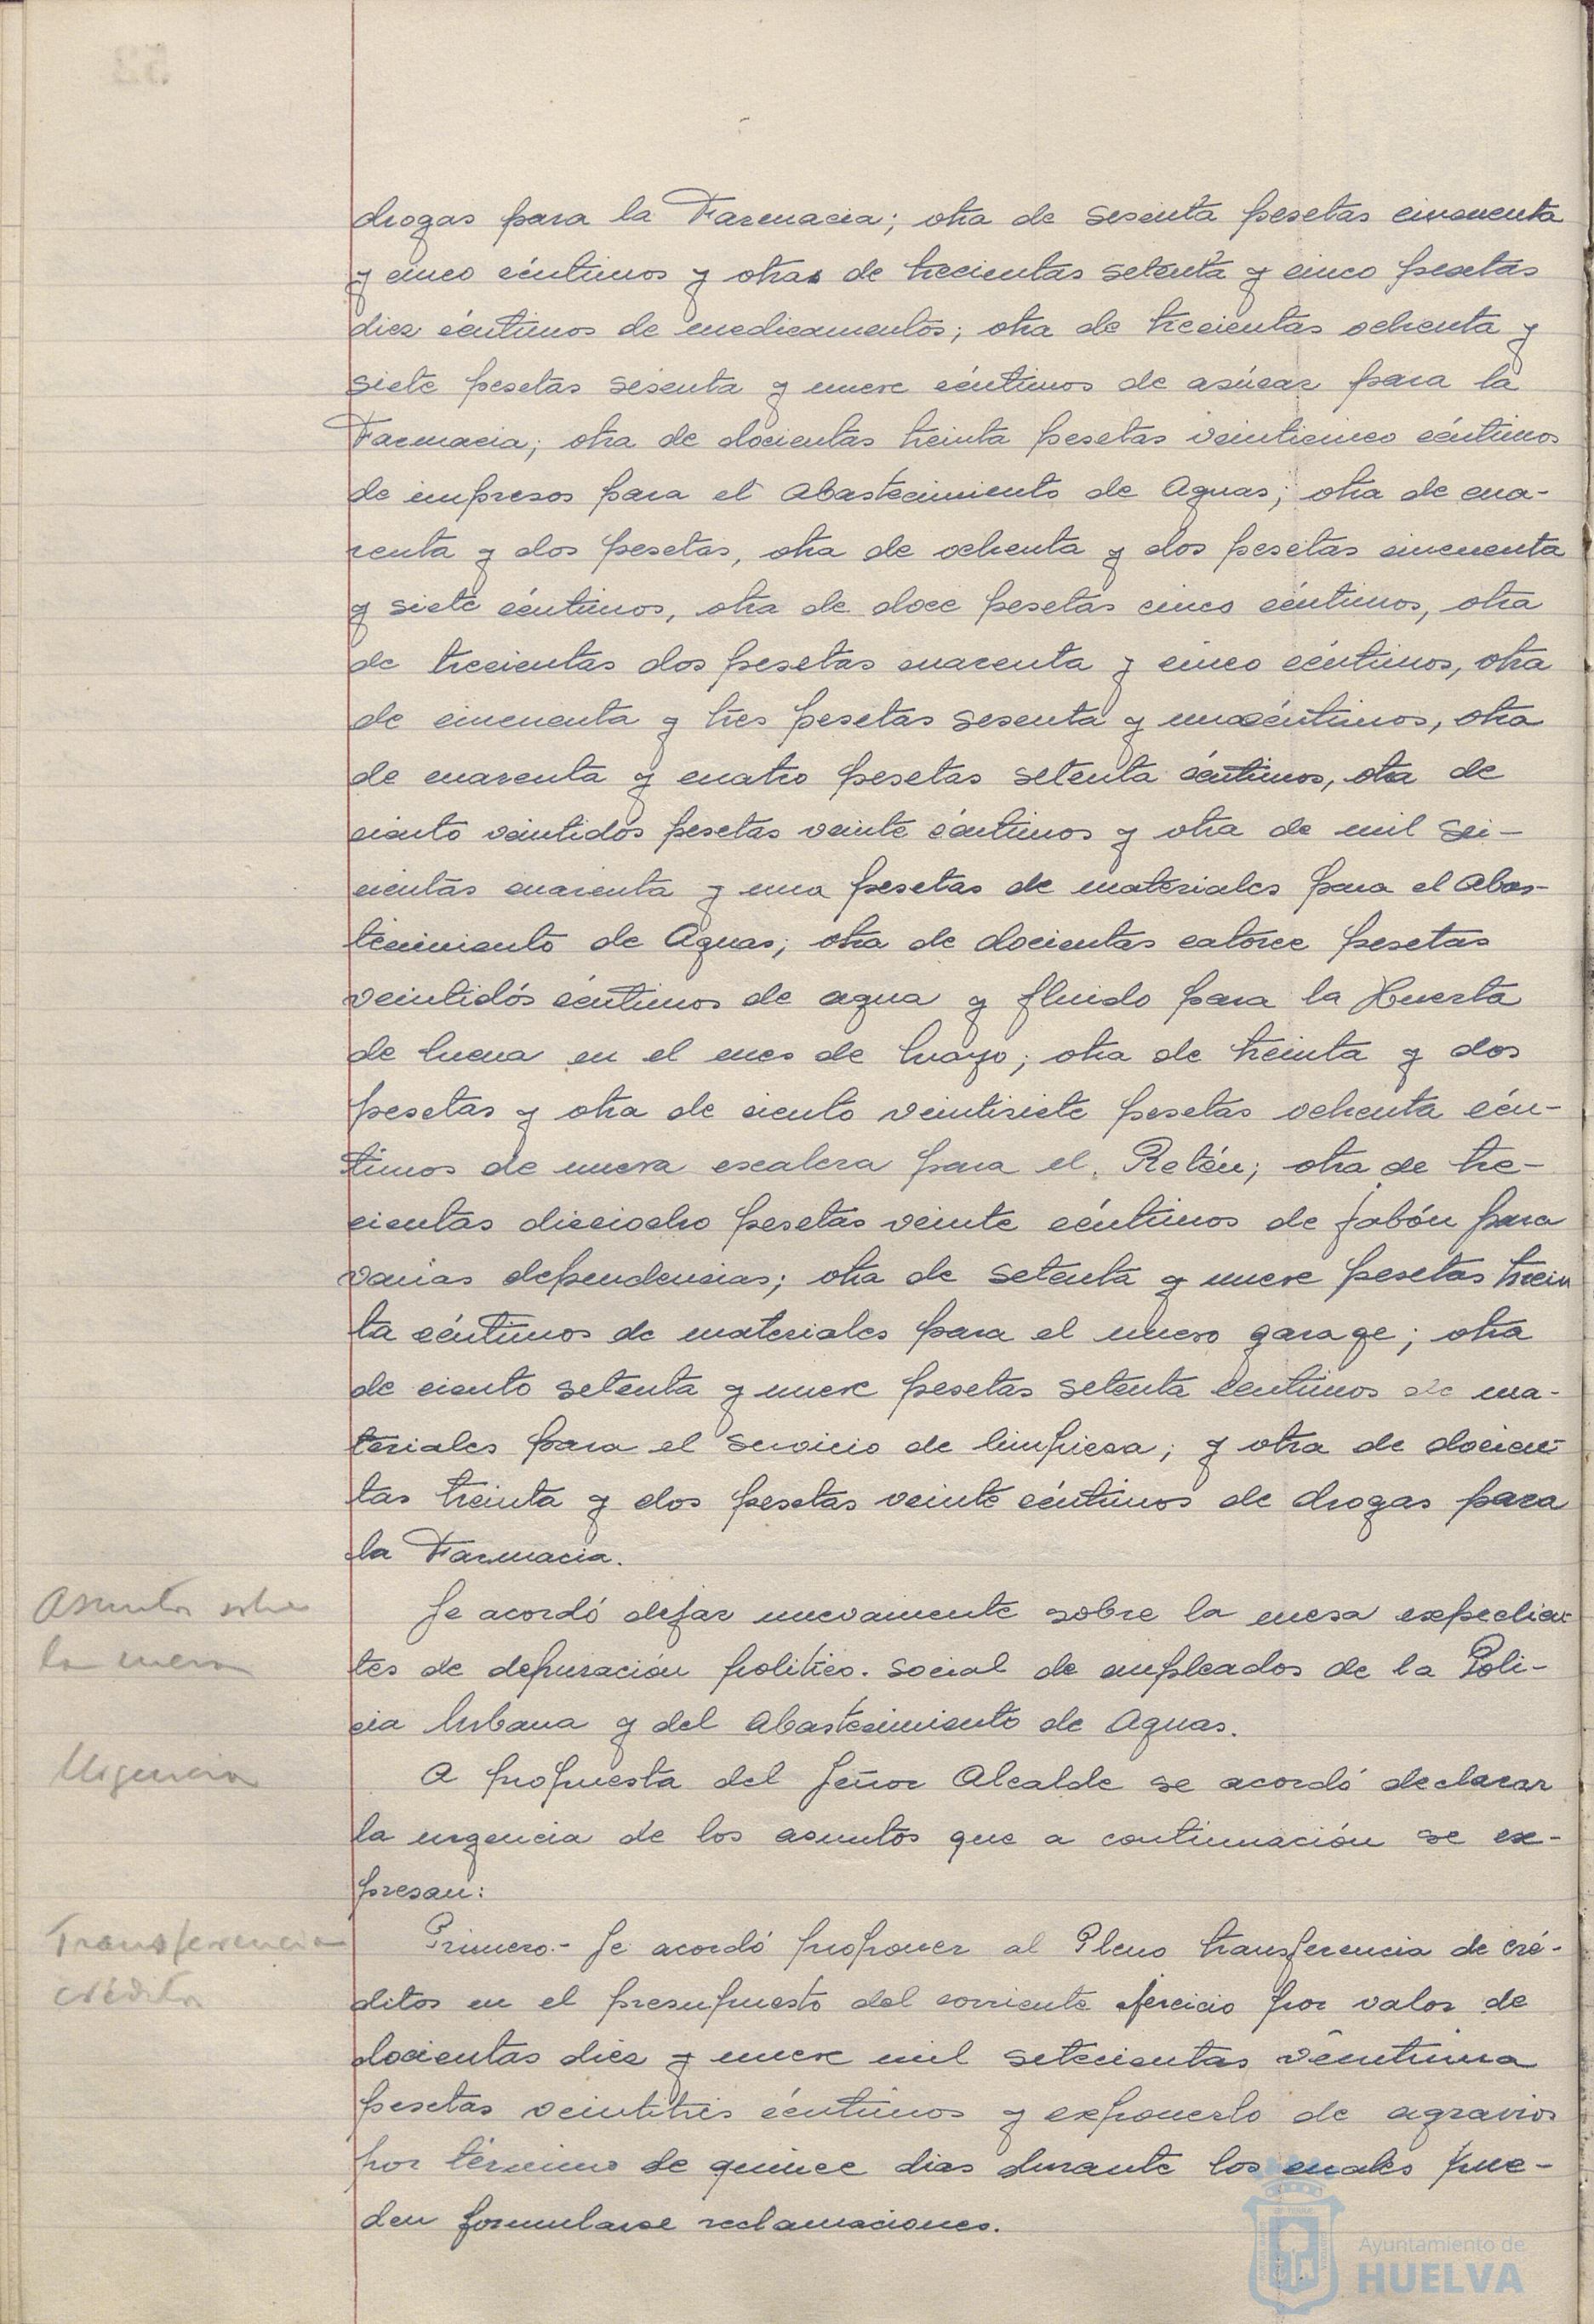 drogas para la Farmacia; otra de sesenta pesetas cincuenta
y cinco céntimos y otras de trecientas setenta y cinco pesetas
diez céntimos de medicamentos; otra de trecientas ochenta y
siete pesetas sesenta y nueve céntimos de azúcar para la
Farmacia; otra de docientas treinta pesetas veinticinco céntimos
de impresos para el Abastecimiento de Aguas; otra de cua-
renta y dos pesetas, otra de ochenta y dos pesetas cincuenta
y siete céntimos, otra de doce pesetas cinco céntimos, otra
de trecientas dos pesetas cuarenta y cinco céntimos, otra
de cincuenta y tres pesetas sesenta y un céntimos, otra
de cuarenta y cuatro pesetas setenta céntimos, otra de
ciento veintidós pesetas veinte céntimos y otra de mil sei-
cientas cuarenta y una pesetas de materiales para el Abas-
tecimiento de Aguas; otra de docientas catorce pesetas
veintidós céntimos de agua y fluido para la Huerta
de Mena en el mes de Mayo; otra de treinta y dos
pesetas y otra de ciento veintisiete pesetas ochenta cén-
timos de nueva escalera para el Retén; otra de tre-
cientas dieciocho pesetas veinte céntimos de jabón para
varias dependencias; otra de setenta y nueve pesetas trein
ta céntimos de materiales para el nuevo garage; otra
de ciento setenta y nueve pesetas setenta céntimos de ma-
teriales para el servicio de limpieza; y otra de docien-
tas treinta y dos pesetas veinte céntimos de drogas para
la Farmacia.
Asuntos sobre
la mesa
Se acordó dejar nuevamente sobre la mesa expedien-
tes de depuración político-social de empleados de la Poli-
cia Urbana y del Abastecimiento de Aguas.
Urgencia
A propuesta del Señor Alcalde se acordó declarar
la urgencia de los asuntos que a continuación se ex-
presan:
Transferencia
crédito
Primero.- Se acordó proponer al Pleno transferencia de cré-
ditos en el presupuesto del corriente ejercicio por valor de
docientas diez y nueve mil setecientas veintiuna
pesetas veintitrés céntimos y exponerlo de agravios
por término de quince dias durante los cuales pue-
den formularse reclamaciones.
Ayuntamiento de
HUELVA